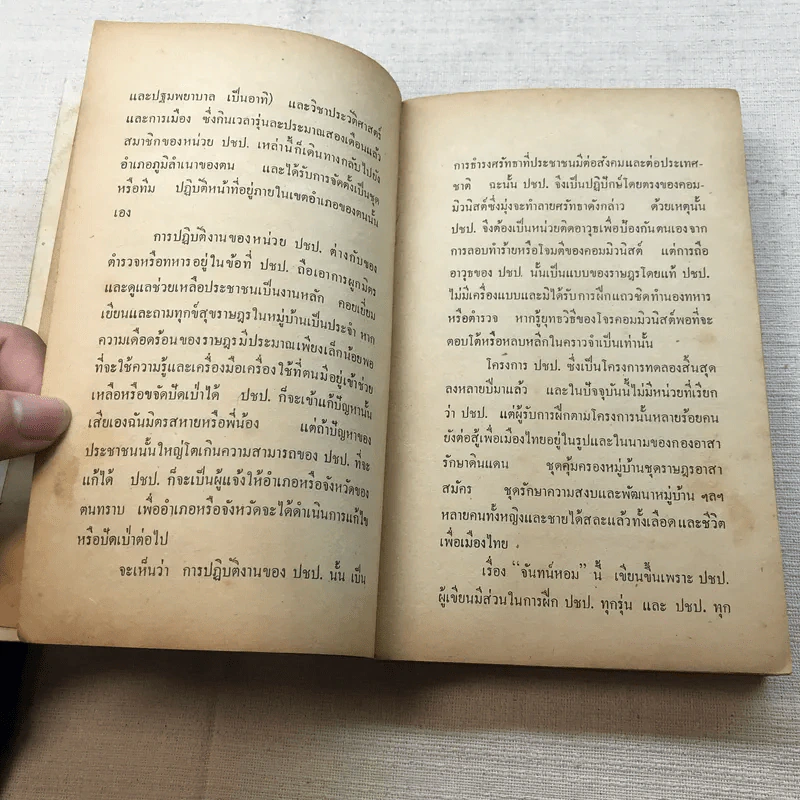 และปฐมพยาบาล เป็นอาทิ) และวิชาประวัติศาสตร์
และการเมือง ซึ่งกินเวลารุ่นละประมาณสองเดือนแล้ว
สมาชิกของหน่วย ปชป. เหล่านี้ก็เดินทางกลับไปยัง
อำเภอภูมิลำเนาของตน และได้รับการจัดตั้งเป็นชุด
หรือทีม ปฏิบัติหน้าที่อยู่ภายในเขตอำเภอของตนนั้น
เอง
การปฏิบัติงานของหน่วย ปชป. ต่างกับของ
ตำรวจหรือทหารอยู่ในข้อที่ ปชป. ถือเอาการผูกมิตร
และดูแลช่วยเหลือประชาชนเป็นงานหลัก คอยเยี่ยม
เยียนและถามทุกข์สุขราษฎรในหมู่บ้านเป็นประจำ หาก
ความเดือดร้อนของราษฎรมีประมาณเพียงเล็กน้อยพอ
ที่จะใช้ความรู้และเครื่องมือเครื่องใช้ที่ตนมีอยู่เข้าช่วย
เหลือหรือขจัดปัดเป่าได้ ปชป. ก็จะเข้าแก้ปัญหานั้น
เสียเองฉันมิตรสหายหรือพี่น้อง แต่ถ้าปัญหาของ
ประชาชนนั้นใหญ่โตเกินความสามารถของ ปชป. ที่จะ
แก้ได้ ปชป. ก็จะเป็นผู้แจ้งให้อำเภอหรือจังหวัดของ
ตนทราบ เพื่ออำเภอหรือจังหวัดจะได้ดำเนินการแก้ไข
หรือปัดเป่าต่อไป
จะเห็นว่า การปฏิบัติงานของ ปชป. นั้น เป็น
การธำรงศรัทธาที่ประชาชนมีต่อสังคมและต่อประเทศ-
ชาติ ฉะนั้น ปชป. จึงเป็นปฏิปักษ์โดยตรงของคอม-
มิวนิสต์ซึ่งมุ่งจะทำลายศรัทธาดังกล่าว ด้วยเหตุนั้น
ปชป. จึงต้องเป็นหน่วยติดอาวุธเพื่อป้องกันตนเองจาก
การลอบทำร้ายหรือโจมตีของคอมมิวนิสต์ แต่การถือ
อาวุธของ ปชป. นั้นเป็นแบบของราษฎรโดยแท้ ปชป.
ไม่มีเครื่องแบบและมิได้รับการฝึกแถวชิดทำนองทหาร
หรือตำรวจ หากรู้ยุทธวิธีของโจรคอมมิวนิสต์พอที่จะ
ตอบโต้หรือหลบหลีกในคราวจำเป็นเท่านั้น
โครงการ ปชป. ซึ่งเป็นโครงการทดลองสิ้นสุด
ลงหลายปีมาแล้ว และในปัจจุบันนี้ไม่มีหน่วยที่เรียก
ว่า ปชป. แต่ผู้รับการฝึกตามโครงการนั้นหลายร้อยคน
ยังต่อสู้เพื่อเมืองไทยอยู่ในรูปและในนามของกองอาสา
รักษาดินแดน ชุดคุ้มครองหมู่บ้านชุดราษฎรอาสา
สมัคร ชุดรักษาความสงบและพัฒนาหมู่บ้าน ฯลฯ
หลายคนทั้งหญิงและชายได้สละแล้วทั้งเลือดและชีวิต
เพื่อเมืองไทย
เรื่อง “จันทน์หอม” นี้ เขียนขึ้นเพราะ ปชป.
ผู้เขียนมีส่วนในการฝึก ปชป. ทุกรุ่น และ ปชป. ทุก